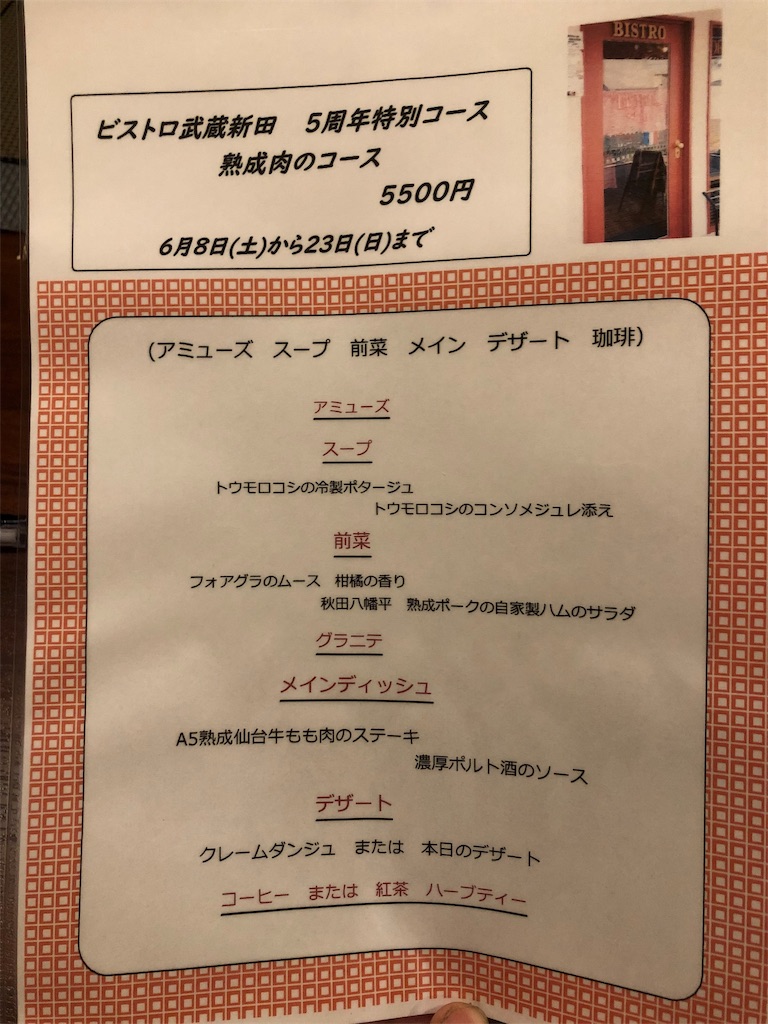 BISTRO
ビストロ武蔵新田　5周年特別コース
熟成肉のコース
5500円
6月8日(土)から23日(日)まで
（アミューズ　スープ　前菜　メイン　デザート　珈琲）
アミューズ
スープ
トウモロコシの冷製ポタージュ
トウモロコシのコンソメジュレ添え
前菜
フォアグラのムース　柑橘の香り
秋田八幡平　熟成ポークの自家製ハムのサラダ
グラニテ
メインディッシュ
A5熟成仙台牛もも肉のステーキ
濃厚ポルト酒のソース
デザート
クレームダンジュ　または　本日のデザート
コーヒー　または　紅茶　ハーブティー